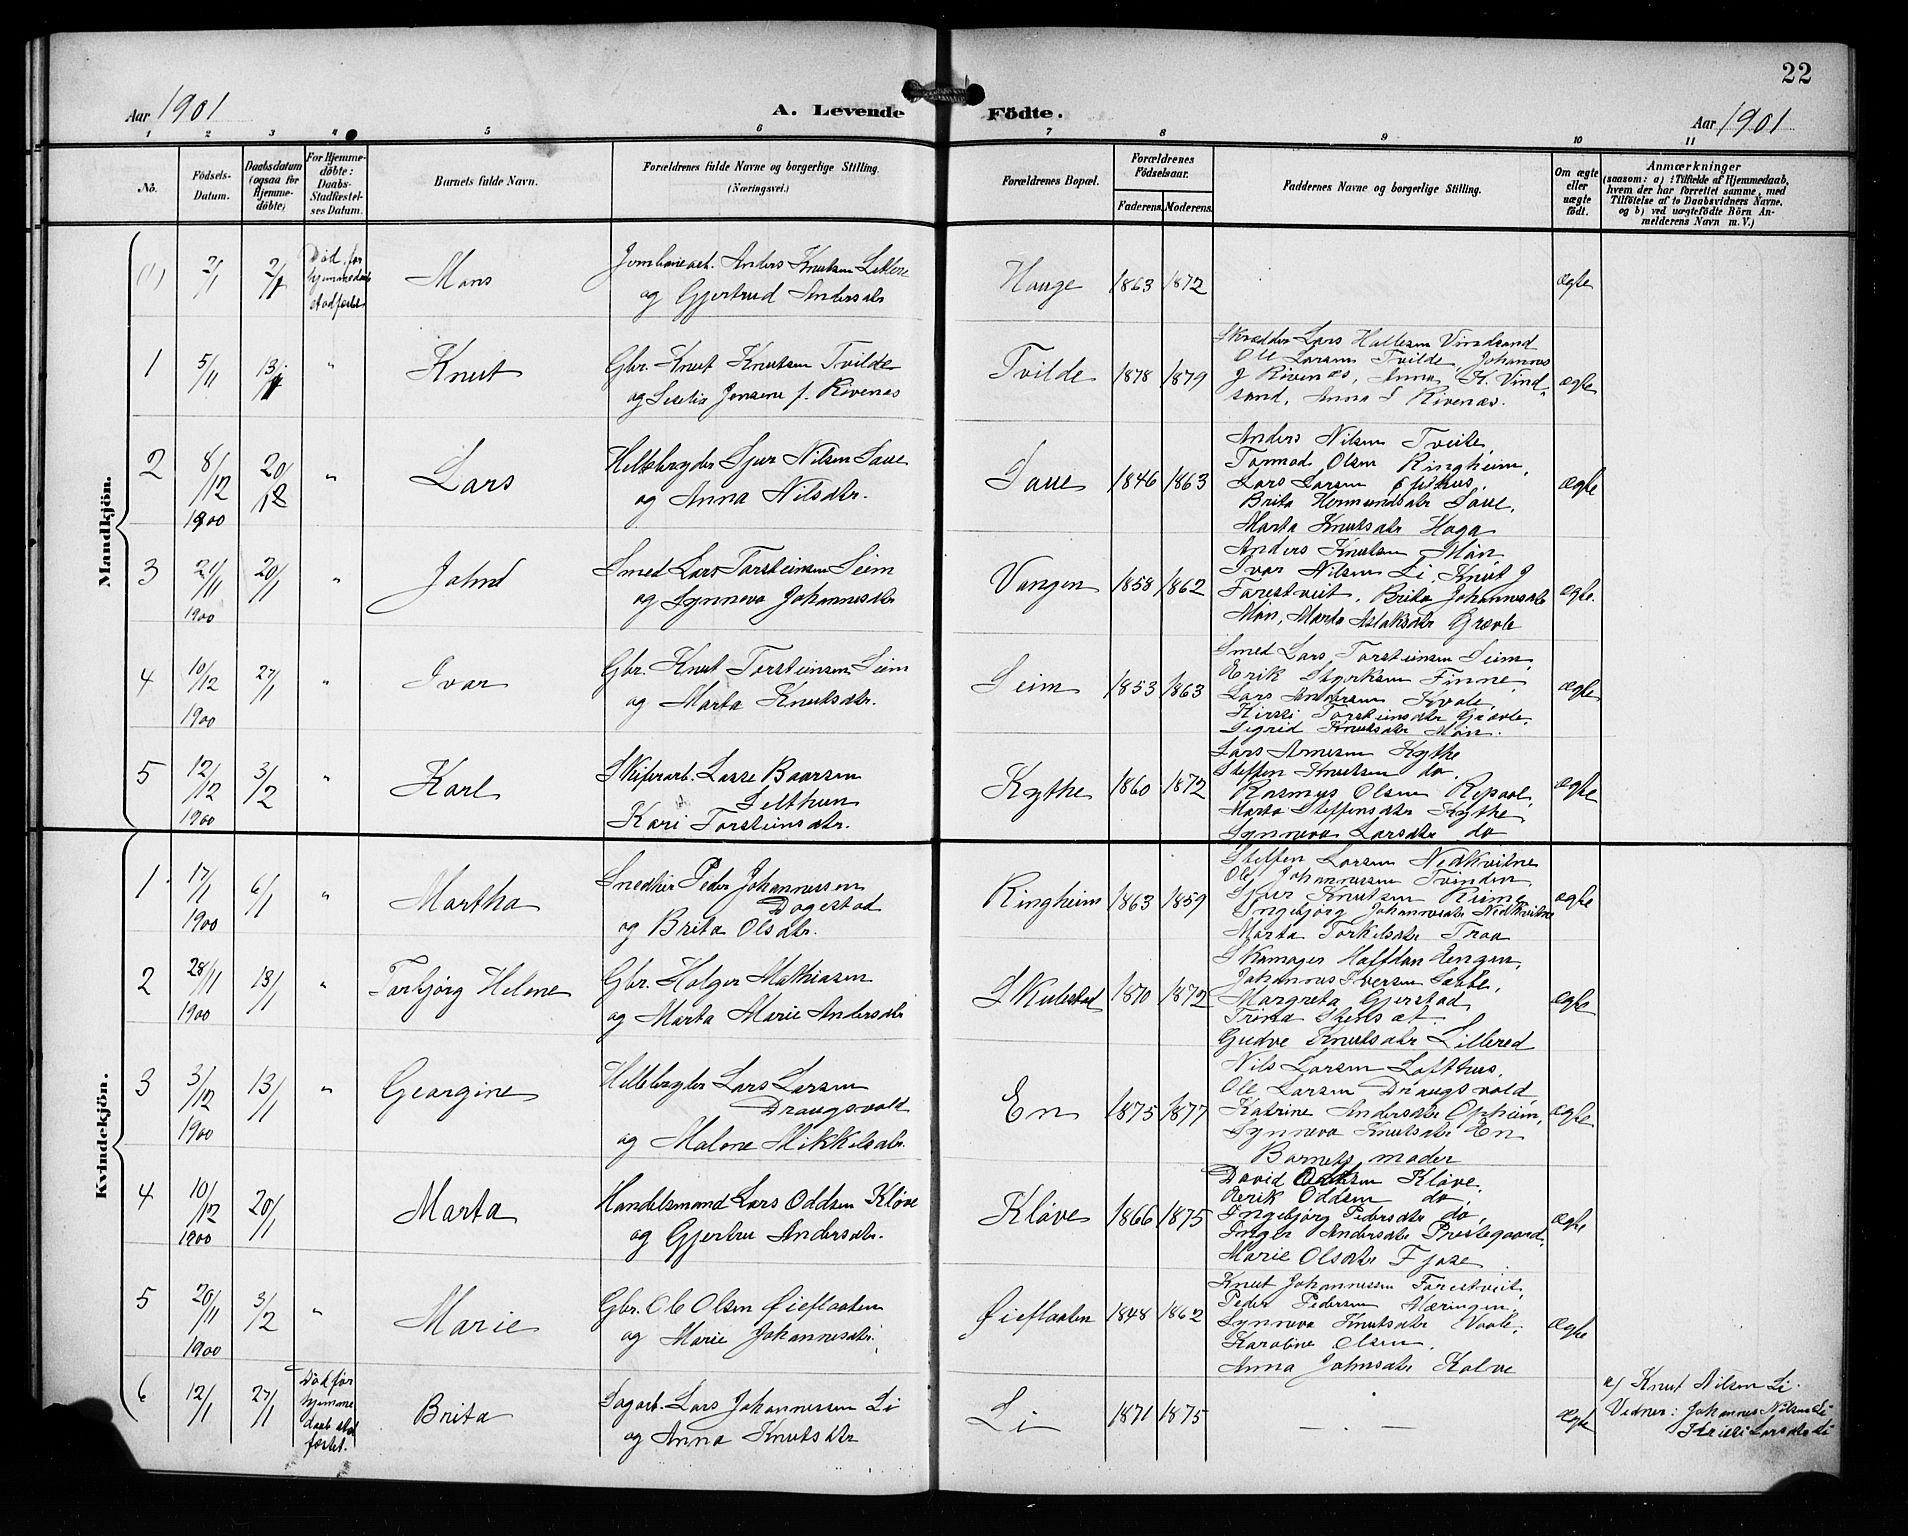 22
Aar 1901
A. Levende Födte.
Aar 1901
1 2 3 4 5 6 7 8 9 10 11
No.
Födsels-
Datum.
Daabsdatum
(ogsaa for
Hjemme-
döbte)
For Hjemme-
döbte:
Daabs-
Stadfæstel-
ses Datum.
Barnets fulde Navn.
Forældrenes fulde Navne og borgerlige Stilling.
(Næringsvei.)
Forældrenes Bopæl.
Forældrenes
Födselsaar.
Faderens. Moderens.
Faddernes Navne og borgerlige Stilling.
Om ægte
eller
uægte
födt.
Anmærkninger
(saasom: a) i Tilfælde af Hjemmedaab,
hvem der har forrettet samme, med
Tilföielse af to Daabsvidners Navne,
og b) ved uægtefödte Börn An-
melderens Navn m. V.)
Mandkjön.
(1) 2/1 2/1 Död før hjemmedaab stadfæst
Mons
Anders Knutsen
og Gjertrud Andersdtr
Hauge 1863 1872
ægte
1 5/11 13/1 "
Knut
Gbr. Knut Knutsen Tvilde
og Jensine f. Rivenæs
Tvilde 1878 1879
Skrædder Lars Hallesen Vindsand
Ole Larsen Tvilde, Johannes
J Rivenæs, Anna K. Vind-
sand, Anna J Rivenæs.
ægte
2 8/12 1900 20/12 "
Lars
Sjur Nilsen Saue
og Anna Nilsdtr.
Saue 1846 1863
Anders Nilsen Tveite,
Tormod Olsen Ringheim,
Lars Larsen
Brita Hermundsdtr Saue,
Marta Knutsdtr Haga
ægte
3 21/11 1900 20/1 "
John
Smed Lars Torsteinsen Seim
og Synneva Johannesdtr
Vangen 1858 1862
Anders Knutsen Møn
Ivar Nilsen Li, Knut J
Farestveit, Brita Johannesdtr
Møn, Marta Aslaksdtr Grævle
ægte.
4 10/12 1900 27/1 "
Ivar
Gbr. Knut Torsteinsen Seim
og Marta Knutsdtr.
Seim 1853 1863
Smed Lars Torsteinsen Seim,
Erik Styrksen Finne,
Lars Andersen Kvale,
Kirsti Torsteinsdtr Grævle,
Sigrid Knutsdtr Møn.
ægte
5 12/12 1900 3/2 "
Karl
Skiferarb. Lasse Baarsen
Selthun
Kari Torsteinsdtr.
Kythe 1860 1872
Lars Arnesen Kythe
Steffen Knutsen do.
Rasmus Olsen
Marta Steffensdtr Kythe,
Synneva Larsdtr do
ægte
Kvindekjön.
1 17/1 1900 6/1 "
Martha
Snedker Peder Johannessen
Dagestad
og Brita Olsdtr.
Ringheim 1863 1859
Steffen Larsen Nedkvitne
Ole Johannessen Tvinden
Sjur Knutsen Rieme
Ingebjørg Johannesdtr Nedkvitne
Marta Torkelsdtr Traa
ægte
2 28/11 1900 13/1 "
Torbjørg Helene
Gbr. Holger Mathiasen
og Marta Marie Andersdtr
Skulestad 1870 1872
Skomager Halfdan Hengen,
Johannes Iversen Sætte,
Margreta Gjerstad,
Gudve Knutsdtr Lillered
ægte
3 3/12 1900 13/1 "
Georgine
Lars Larsen
Draugsvold
og Malene Mikkelsdtr.
En 1875 1877
Nils Larsen Lofthus,
Ole Larsen Draugsvold,
Katrine Andersdtr Opheim,
Synneva Knutsdtr En
Barnets moder
ægte
4 10/12 1900 20/1
Marta
Handelsmand Lars Oddsen Kløve
og Gjertru Andersdtr.
Kløve 1866 1875
David Oddsen Kløve,
Erik Oddsen do,
Ingebjørg Pedersdtr do,
Inger Andersdtr Prestegaard,
Marie Olsdtr Fjose
ægte
5 20/11 1900 3/2 "
Marie
Gbr. Ole Olsen Øieflaaten
og Marie Johannesdtr.
Øieflaaten 1848 1862
Knut Johannessen Farestveit,
Peder Pedersen Mæringen,
Synneva Knutsdtr
Karoline Olsen,
Anna Johnsdtr Kolve
ægte
6 12/1 27/1 Död før hjemmedaab stadfæstet.
Brita
Dagarb. Lars Johannessen Li
og Anna Knutsdtr
Li 1871 1875
— . —
ægte
a) Knut Nilsen Li.
Vidner: Johannes Nilsen Li
Larsdtr Li